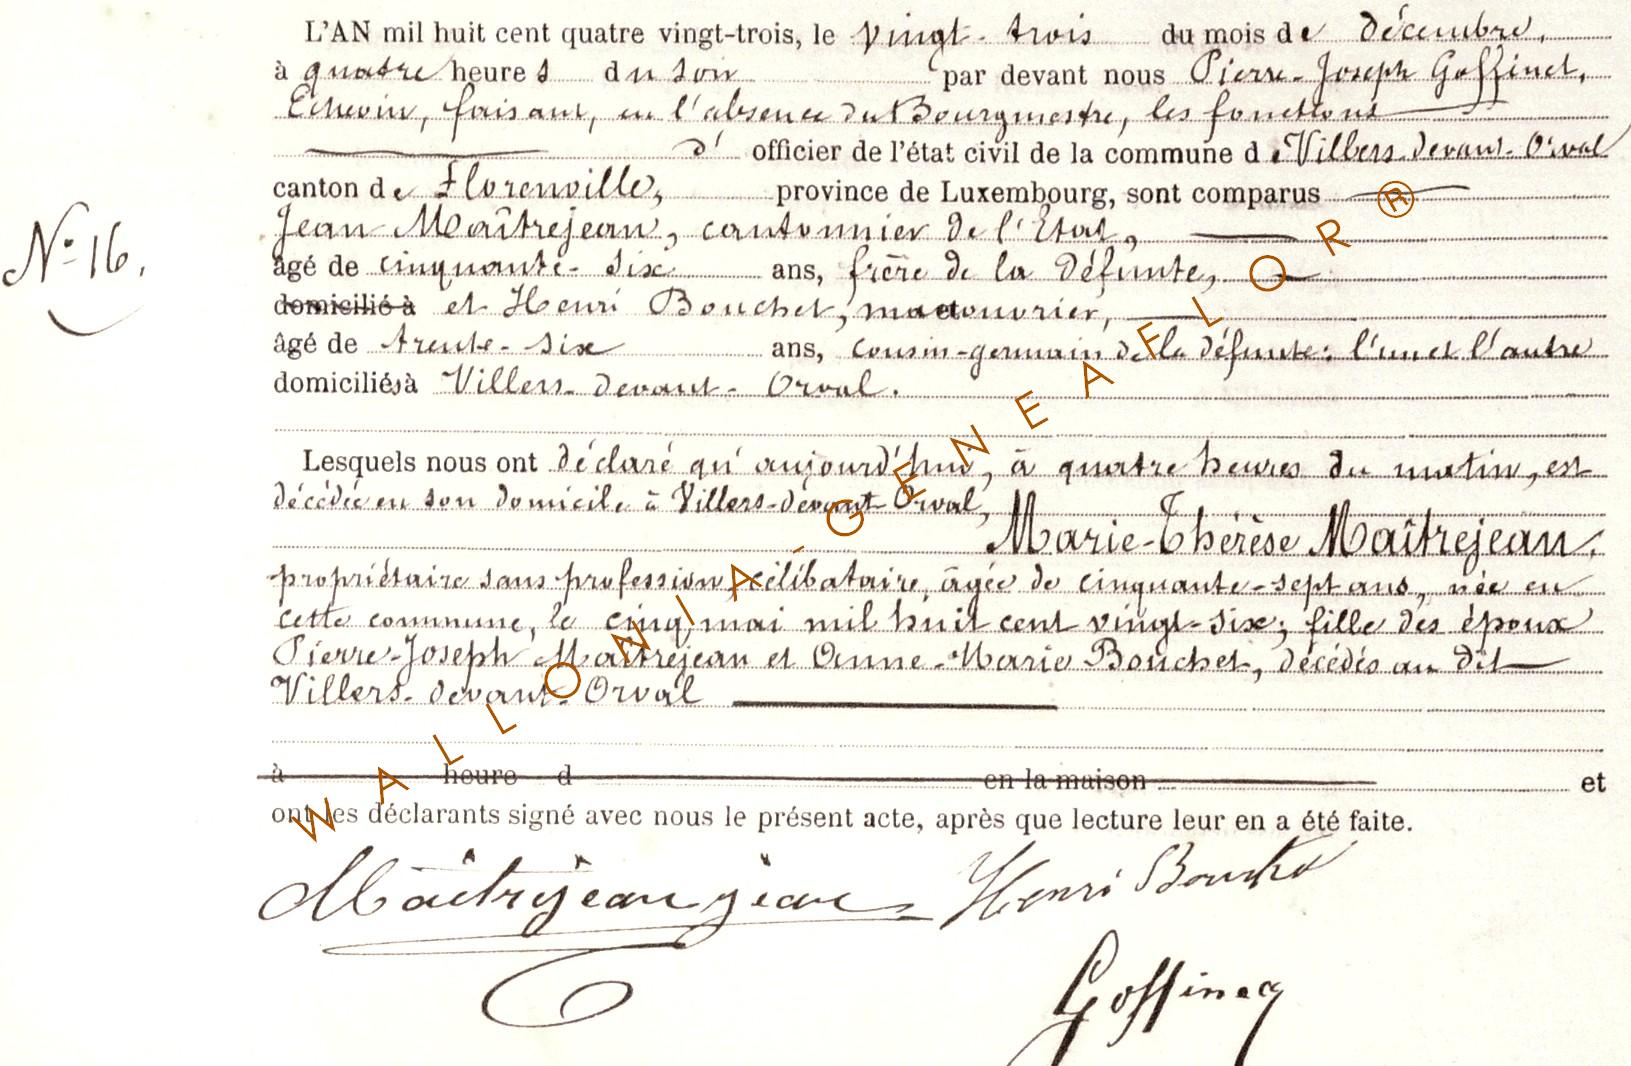 L'AN mil huit cent quatre vingt-trois, le vingt-trois du mois de décembre,
à quatre heures du soir par devant nous Pierre-Joseph Goffinet,
Echevin, faisant, en l'absence du Bourgmestre, les fonctions
d' officier de l'état civil de la commune de Villers-devant-Orval
canton de Florenville, province de Luxembourg, sont comparus
Jean Maîtrejean, cantonnier de l'Etat,
N° 16.
âgé de cinquante-six ans, frère de la défunte,
domicilié à et Henri Bouchet, manouvrier,
âgé de trente-six ans, cousin-germain de la défunte: l'un et l'autre
domiciliés à Villers-devant-Orval.
Lesquels nous ont déclaré qu'aujourd'hui, à quatre heures du matin, est
décédée en son domicile à Villers-devant Orval,
Marie-Thérèse Maîtrejean,
propriétaire sans profession, célibataire, âgée de cinquante-sept ans, née en
cette commune, le cinq mai mil huit cent vingt-six; fille des époux
Pierre-Joseph Maîtrejean et Anne-Marie Bouchet, décédés au dit
Villers-devant-Orval
à heure d en la maison et
ont les déclarants signé avec nous le présent acte, après que lecture leur en a été faite.
Maîtrejean jean Henri Bouchet
Goffinet
WALLONIA-GENEAFLOR ®